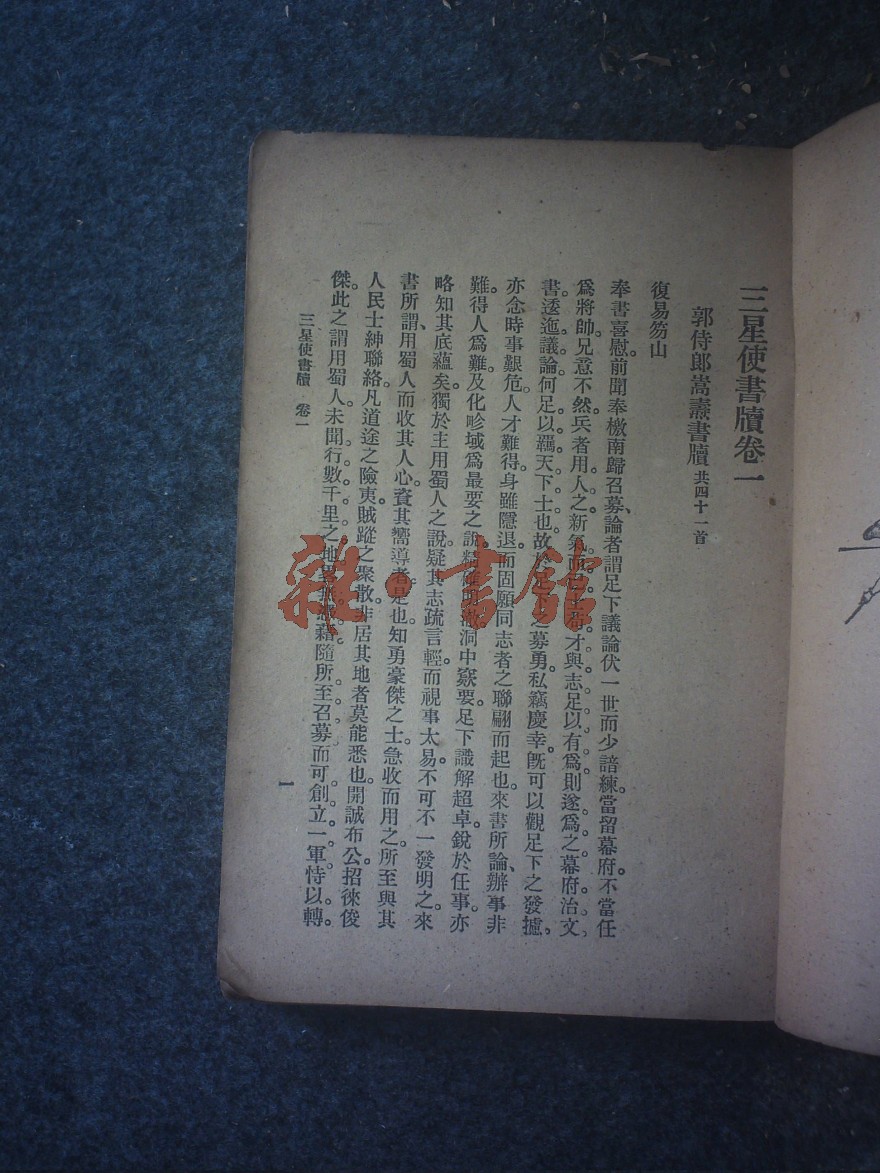 三星使書牘卷一
郭侍郎嵩燾書牘 共四十一首
復易笏山
奉書喜慰前聞奉檄南歸召募、論者謂足下議論伏一世而少諳練。當留幕府不當任
爲將帥。兄意不然。兵者用人之新氣而已。士苟才與志足以有爲則遂爲之。幕府治文
書逶迤議論何足以羈天下士也。故於足下之募勇私竊慶幸。旣可以觀足下之發攄。
亦念時事艱危。人才難得。身雖隱退。而固願同志者之聯翩而起也。來書所論、辦事非
難。得人爲難。及化畛域爲最要之說。精確明 洞中窾要。足下識解超卓。銳於任事。亦
略知其底蘊矣。獨於主用蜀人之說。疑其志疏言輕。而視事太易。不可不一發明之。來
書所謂、用蜀人而收其人心。資其嚮導者。是也。知勇豪傑之士。急收而用之。所至與其
人民士紳聯絡。凡道途之險夷。賊蹤之聚散。非居其地者莫能悉也。開誠布公。招徠俊
傑。此之謂用蜀人。未聞行數千里之地。 藉隨所至召募。而可創立一軍。恃以轉。
三星使書牘 卷一
一
雜·書館